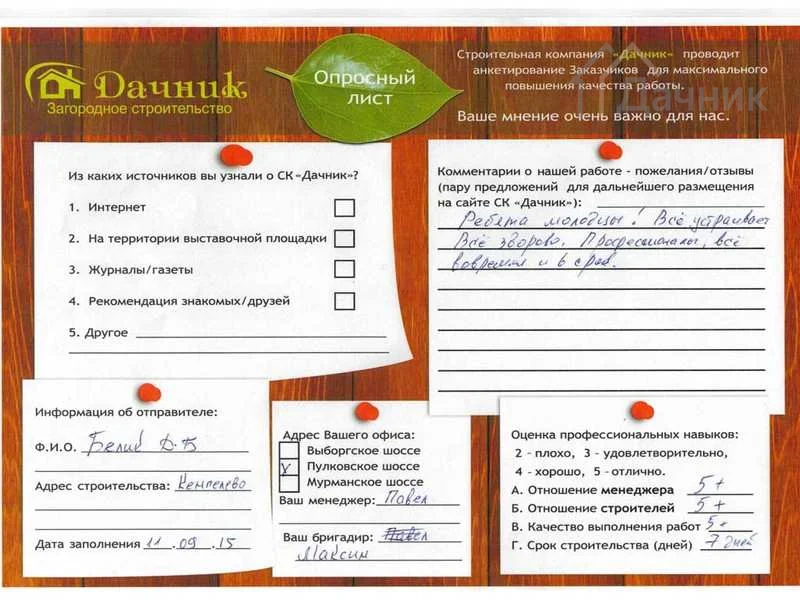 Дачник
Загородное строительство
Опросный
лист
Строительная компания «Дачник» проводит
анкетирование Заказчиков для максимального
повышения качества работы.
Ваше мнение очень важно для нас.
Дачник
Из каких источников вы узнали о СК «Дачник»?
1. Интернет
2. На территории выставочной площадки
3. Журналы/газеты
4. Рекомендация знакомых/друзей
5. Другое
Комментарии о нашей работе - пожелания/отзывы
(пару предложений для дальнейшего размещения
на сайте СК «Дачник»):
Ребята молодцы! Всё устраивает
Всё здорово. Профессионалы, всё
вовремя и в срок.
Информация об отправителе:
Ф.И.О. Белик Д.В
Адрес строительства: Кемпелево
Дата заполнения 11 .09 .15
Адрес Вашего офиса:
Выборгское шоссе
V Пулковское шоссе
Мурманское шоссе
Ваш менеджер: Павел
Ваш бригадир: Павел
Максим
Оценка профессиональных навыков:
2 - плохо, 3 - удовлетворительно,
4 - хорошо, 5 - отлично.
А. Отношение менеджера 5+
Б. Отношение строителей 5+
В. Качество выполнения работ 5+
Г. Срок строительства (дней) 7 дней